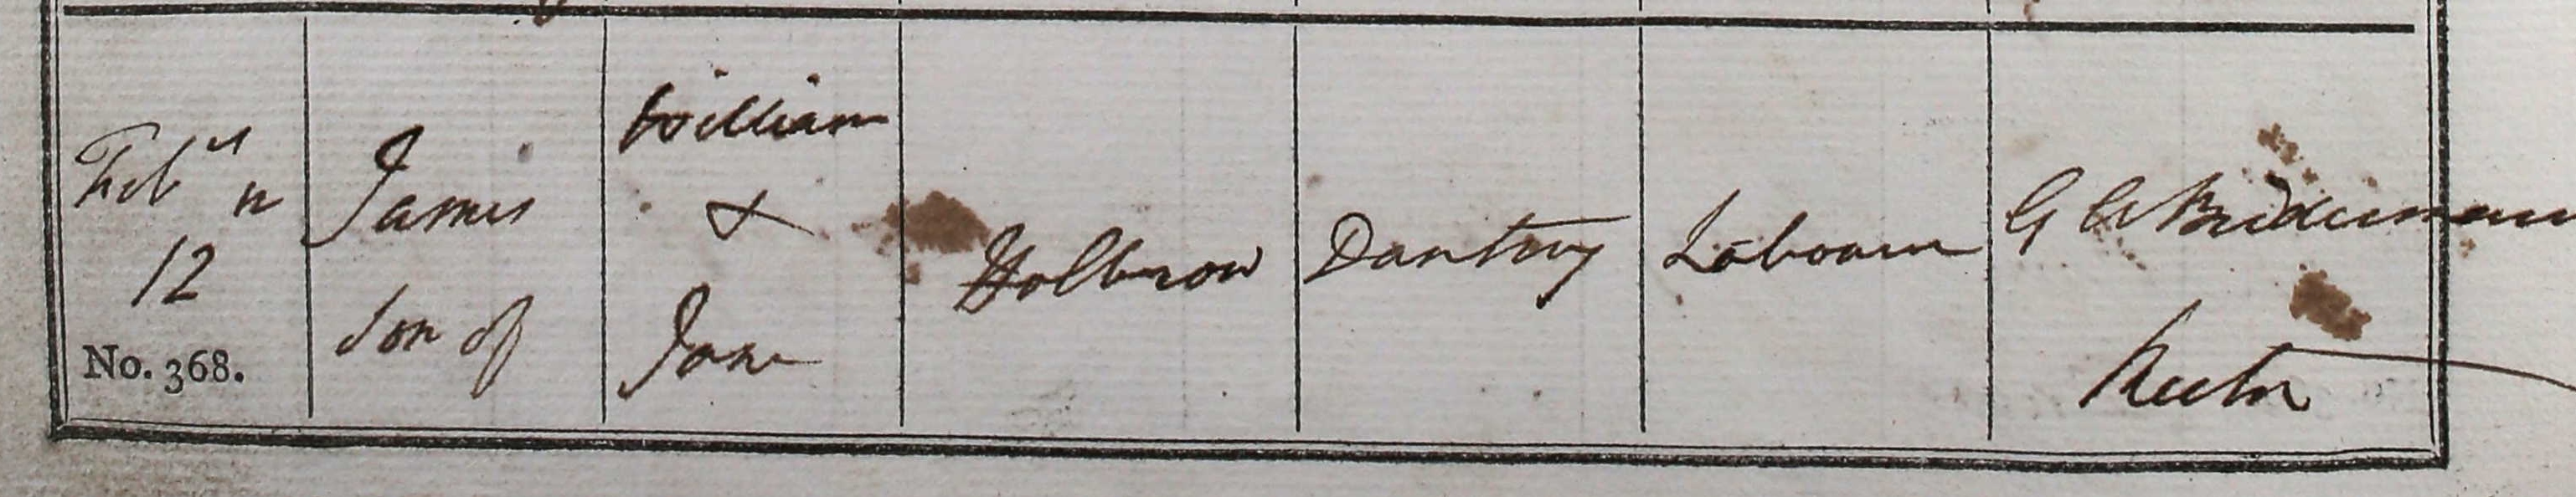 Feby
12
No. 368.
James
Son of
William
&
Jane
Holbrow
Dantsey
Labourer
G A Bridgeman
Rector